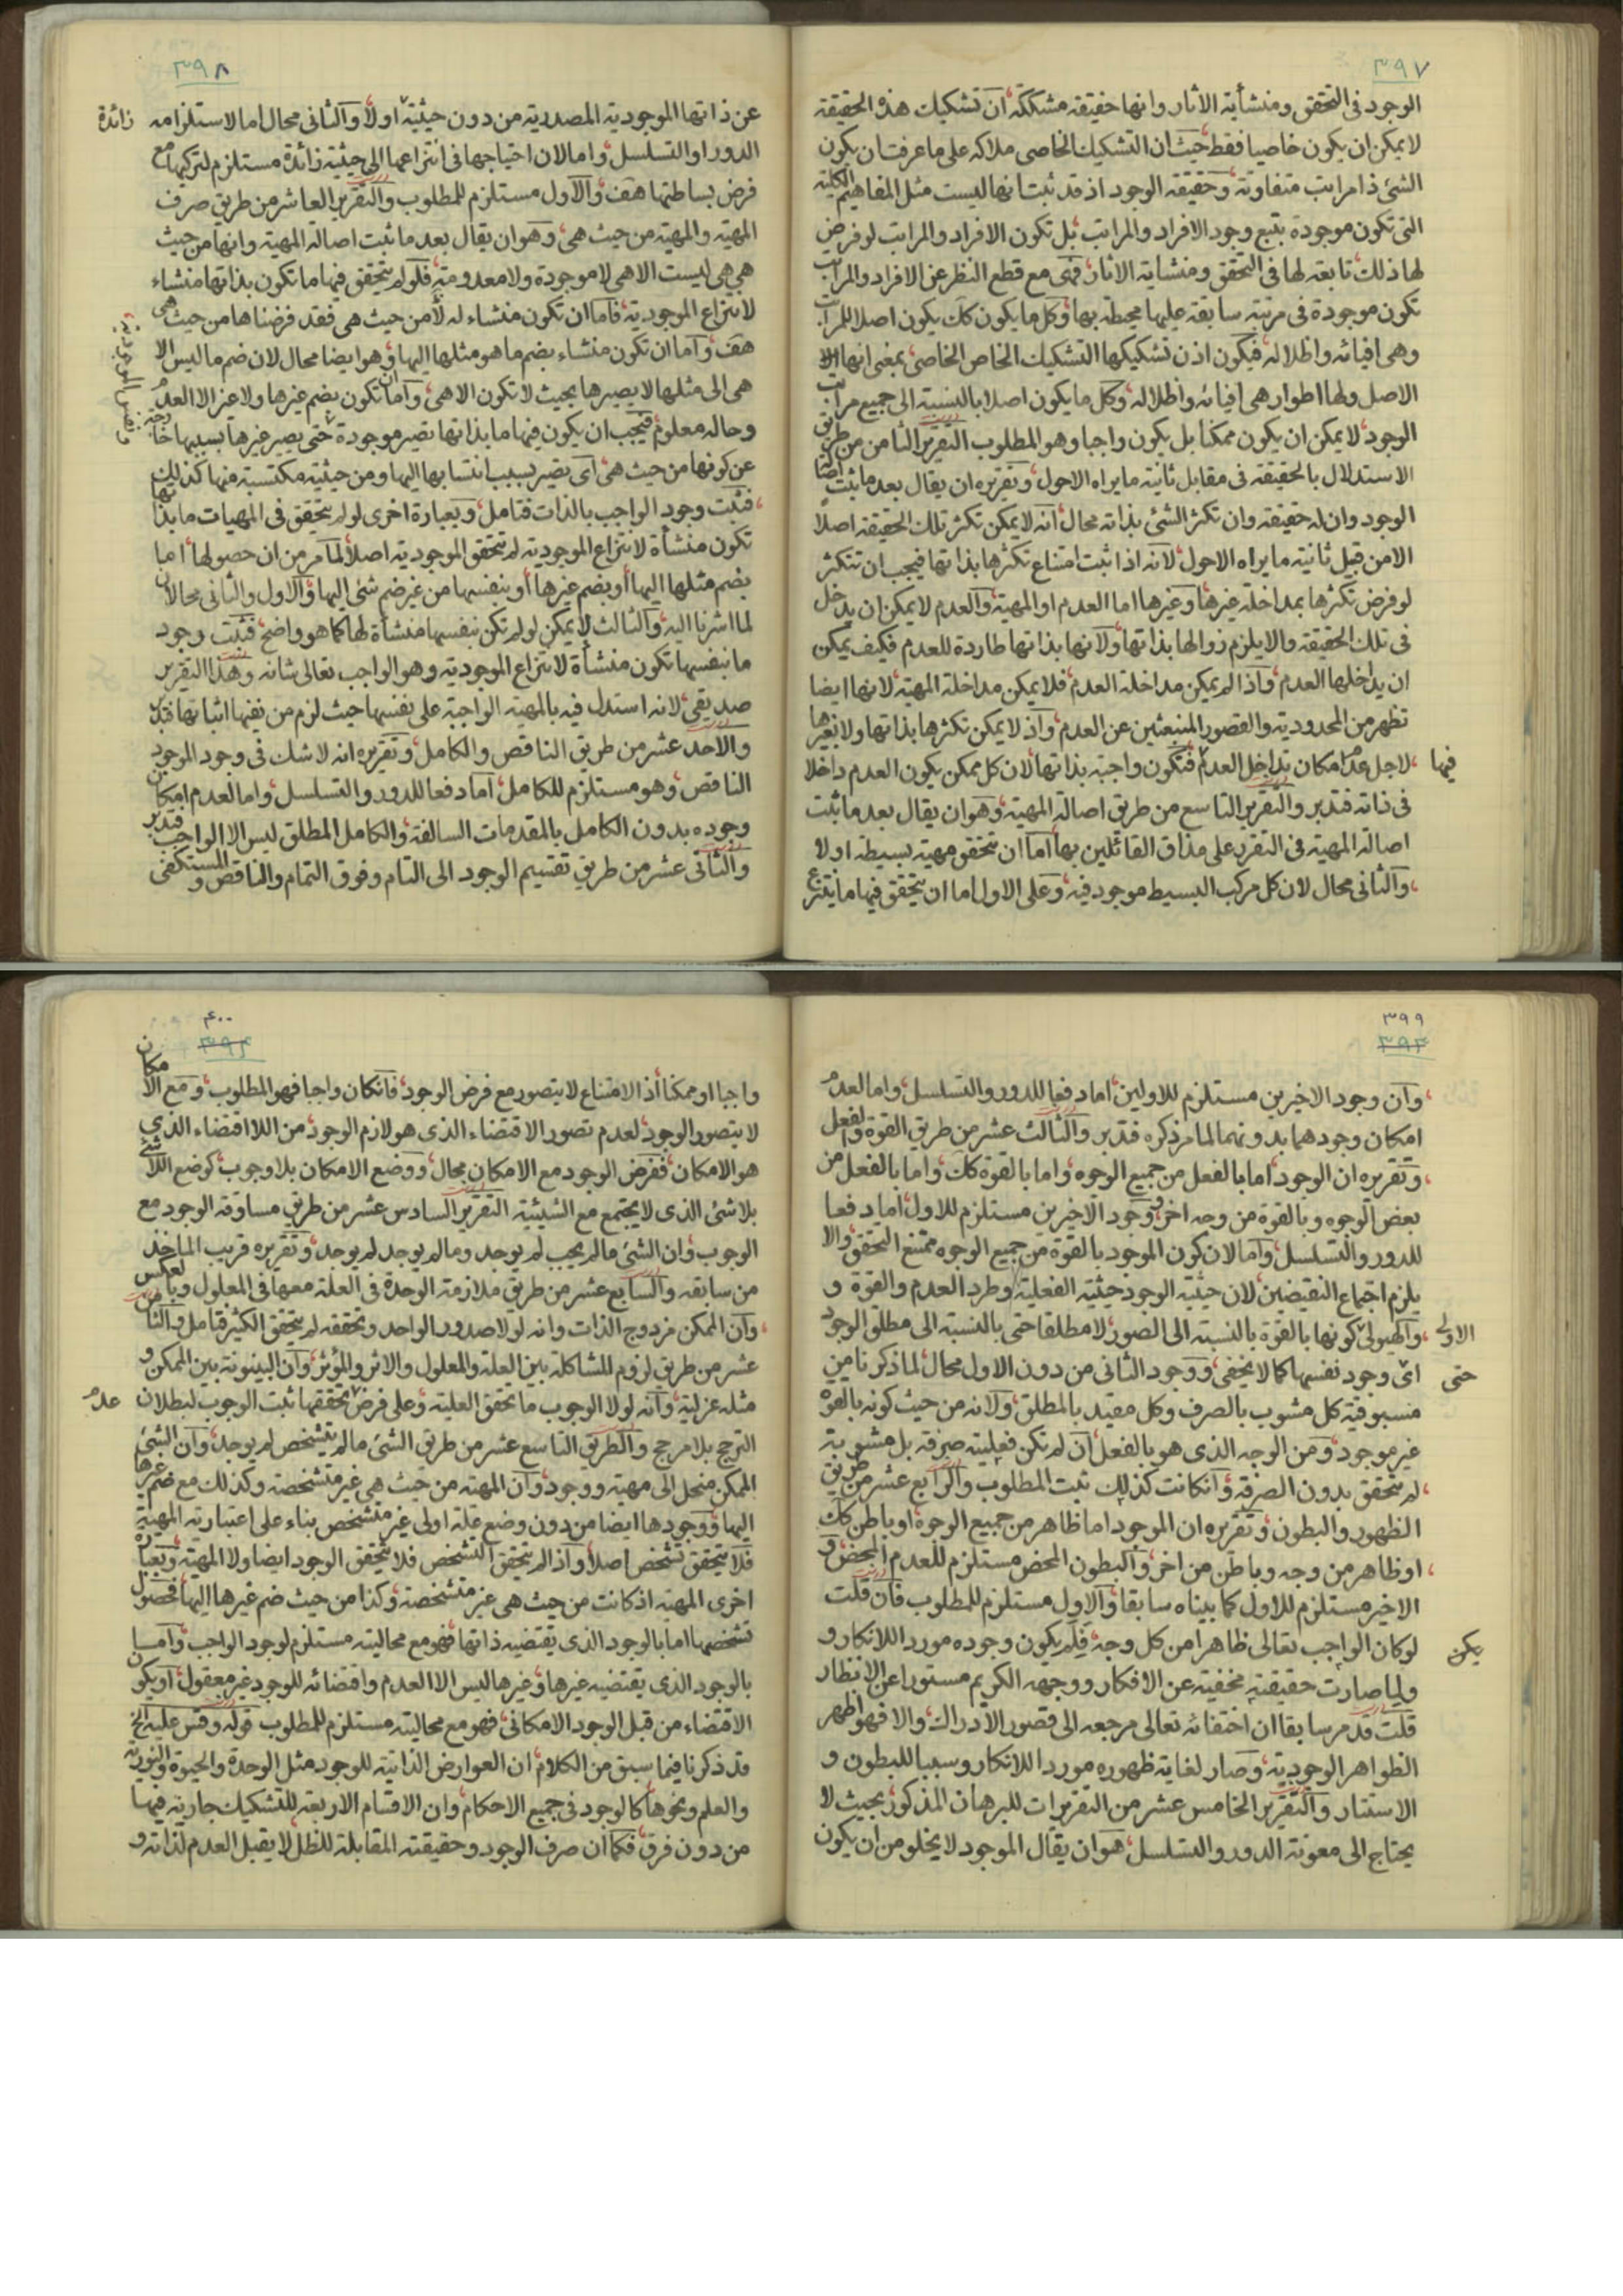 ٣٩٧
الوجود فى التحقق ومنشأية الاثار وانها حقيقة مشككة، ان تشكيك هذه الحقيقة
لايمكن ان يكون خاصيا فقط حيث ان التشكيك الخاصى ملاكه على ما عرفت ان يكون
الشئ ذا مراتب متفاوتة، وحقيقة الوجود اذ قد ثبت انها ليست مثل المفاهيم الكلية
التى تكون موجودة بتبع وجود الافراد والمراتب بل تكون الافراد والمراتب لو فرض
لها ذلك تابعة لها فى التحقق ومنشاية الاثار فهى مع قطع النظر عن الافراد والمراتب
تكون موجودة فى مرتبة سابقة عليها محيطة بها وكل ما يكون كك يكون اصلا للمراتب
وهى افيائه واظلاله فيكون اذن تشكيكها التشكيك الخاص الخاصى بمعنى انها
الاصل ولها اطوار هى افيائه واظلاله، وكل ما يكون اصلا بالنسبة الى جميع مراتب
الوجود لا يمكن ان يكون ممكنا بل يكون واجبا وهو المطلوب التقرير الثامن من طريق
الاستدلال بالحقيقة فى مقابل ثانية ما يراه الاحول، وتقريره ان يقال بعد ما ثبت اصالة
الوجود وان له حقيقة وان تكثر الشئ بذاته محال، انه لا يمكن تكثر تلك الحقيقة اصلاً
الا من قبل ثانية ما يراه الاحول لانه اذا ثبت امتناع تكثرها بذاتها فيجب ان تتكثر
لو فرض تكثرها بمداخلة غيرها، وغيرها اما العدم او المهية والعدم لا يمكن ان يدخل
فى تلك الحقيقة والا يلزم زوالها بذاتها ولانها بذاتها طاردة للعدم فكيف يمكن
ان يداخلها العدم، واذا لم يمكن مداخلة العدم فلا يمكن مداخلة المهية لانها ايضا
تظهر من المحدودية والقصور المنبعثين عن العدم، واذ لا يمكن تكثرها بذاتها ولا بغيرها
لاجل عدم امكان تداخل العدم فيها فتكون واجبة بذاتها لان كل ممكن يكون العدم داخلا
فى ذاته فتدبر والتقرير التاسع من طريق اصالة المهية، وهو ان يقال بعد ما ثبت
اصالة المهية فى التقرر على مذاق القائلين بها اما ان تتحقق مهية بسيطة او لا
والثانى محال لان كل مركب البسيط موجود فيه، وعلى الاول اما ان يتحقق فيها ما ينتزع
٣٩٨
عن ذاتها الموجودية المصدرية من دون حيثية زائدة اولاً والثانى محال اما لاستلزامه
الدور او التسلسل، واما لان احتياجها فى انتزاعها الى حيثية زائدة مستلزم لتركبها مع
فرض بساطتها هف، والاول مستلزم للمطلوب والتقرير العاشر من طريق صرف
المهية والمهية من حيث هى، وهو ان يقال بعد ما ثبت اصالة المهية وانها من حيث
هى هى ليست الا هى لا موجودة ولا معدومة، فلو لم يتحقق فيها ما تكون بذاتها منشاء
لانتزاع الموجودية، فاما ان تكون منشاء له لأمن حيث هى فقد فرضناها من حيث هى
هف، واما ان تكون منشاء بضم ما هو مثلها اليها، وهو ايضا محال لان ضم ما ليس الا
هى الى مثلها لا يصيرها بحيث لا تكون الا هى، واما ان تكون بضم غيرها ولا غير الا العدم
وحاله معلوم، فيجب ان يكون فيها ما بذاتها تصير موجودة حتى يصير غيرها بسببها خارجة
عن كونها من حيث هى، اى يصير بسبب انتسابها اليها ومن حيثية مكتسبة منها كذلك
فثبت وجود الواجب بالذات فتامل، وبعبارة اخرى لو لم يتحقق فى المهيات ما بذاتها
تكون منشأة لانتزاع الموجودية لم يتحقق الموجودية اصلاً لما مر من ان حصولها، اما
بضم مثلها اليها أو بضم غيرها أو بنفسها من غير ضم شئ اليها، والاول والثانى محالان
لما اشرنا اليه، والثالث لا يمكن لو لم تكن بنفسها منشأة لها كما هو واضح، فثبت وجود
ما بنفسها تكون منشأة لانتزاع الموجودية وهو الواجب تعالى شانه وهذا التقرير
صديقى، لانه استدل فيه بالمهية الواجبة على نفسها حيث لزم من نفيها اثباتها فتدبر
والاحد عشر من طريق الناقص والكامل، وتقريره انه لا شك فى وجود الموجود
الناقص، وهو مستلزم للكامل، اما دفعا للدور والتسلسل، واما لعدم امكان
وجوده بدون الكامل بالمقدمات السالفة، والكامل المطلق ليس الا الواجب فتدبر
والثانى عشر من طريق تقسيم الوجود الى التام وفوق التمام والناقص والمستكفى
٣٩٩
وان وجود الاخيرين مستلزم للاولين، اما دفعا للدور والتسلسل، واما لعدم
امكان وجودهما بدونهما لما مر ذكره فتدبر والثالث عشر من طريق القوة والفعل
وتقريره ان الوجود اما بالفعل من جميع الوجوه، واما بالقوة كك، واما بالفعل من
بعض الوجوه وبالقوة من وجه اخر، ووجود الاخيرين مستلزم للاول، اما دفعا
للدور والتسلسل، واما لان كون الموجود بالقوة من جميع الوجوه ممتنع التحقق، والا
يلزم اجتماع النقيضين، لان حيثية الوجود حيثية الفعلية، وطرد العدم والقوة و
والهيولى الاولى كونها بالقوة بالنسبة الى الصور، لا مطلقا حتى بالنسبة الى مطلق الوجود
اى حتى وجود نفسها كما لا يخفى، ووجود الثانى من دون الاول محال، لما ذكرنا من
مسبوقية كل مشوب بالصرف وكل مقيد بالمطلق، ولانه من حيث كونه بالقوة
غير موجود، ومن الوجه الذى هو بالفعل ان لم تكن فعليته صرفة بل مشوبة
لم يتحقق بدون الصرفة، وان كانت كذلك ثبت المطلوب والرابع عشر من طريق
الظهور والبطون، وتقريره ان الموجود اما ظاهر من جميع الوجوه او باطن كك
او ظاهر من وجه وباطن من اخر، والبطون المحض مستلزم للعدم المحض، و
الاخير مستلزم للاول كما بيناه سابقا، والاول مستلزم للمطلوب فان قلت
لو كان الواجب تعالى ظاهرا من كل وجه، فلم يكن يكون وجوده مورد اللانكار و
ولما صارت حقيقته مخفية عن الافكار ووجهه الكريم مستورا عن الانظار
قلت قد مر سابقا ان اختفائه تعالى مرجعه الى قصور الادراك، والا فهو اظهر
الظواهر الوجودية، وصار لغاية ظهوره موردا للانكار وسببا للبطون و
الاستتار والتقرير الخامس عشر من التقريرات للبرهان المذكور بحيث لا
يحتاج الى معونة الدور والتسلسل، هو ان يقال الموجود لا يخلو من ان يكون
٤٠٠
واجبا او ممكنا، اذ الامتناع لا يتصور مع فرض الوجود، فان كان واجبا فهو المطلوب، ومع الامكان
لا يتصور الوجود، لعدم تصور الاقتضاء الذى هو لازم الوجود، من اللااقتضاء الذى
هو الامكان، ففرض الوجود مع الامكان محال، ووضع الامكان بلا وجوب كوضع اللاشئ
بلا شئ الذى لا يجتمع مع الشيئية التقرير السادس عشر من طريق مساوقة الوجود مع
الوجوب، وان الشئ ما لم يجب لم يوجد وما لم يوجد لم يوجد، وتقريره قريب الماخذ
من سابقه والسابع عشر من طريق ملازمة الوحدة فى العلة معها فى المعلول وبالعكس
وان الممكن مزدوج الذات وانه لولا صدور الواحد وتحققه لم يتحقق الكثير فتامل والثامن
عشر من طريق لزوم المشاكلة بين العلة والمعلول والاثر والمؤثر، وان البينونة بين الممكن و
مثله عزلية، وانه لولا الوجوب ما تحقق العلية، وعلى فرض عدم تحققها ثبت الوجوب لبطلان
الترجح بلا مرجح والطريق التاسع عشر من طريق الشئ ما لم يتشخص لم يوجد، وان الشئ
الممكن منحل الى مهية ووجود، وان المهية من حيث هى غير متشخصة، وكذلك مع ضم غيرها
اليها، ووجودها ايضا من دون وضع علة اولى غير متشخص بناء على اعتبارية المهية
فلا يتحقق تشخص اصلا، واذا لم يتحقق التشخص فلا يتحقق الوجود ايضا ولا المهية، وبعبارة
اخرى المهية اذ كانت من حيث هى غير متشخصة، وكذا من حيث ضم غيرها اليها فحصول
تشخصها اما بالوجود الذى يقتضيه ذاتها فهو مع محاليته مستلزم لوجود الواجب، واما
بالوجود الذى يقتضيه غيرها، وغيرها ليس الا العدم واقتضائه للوجود غير معقول، او يكون
الاقتضاء من قبل الوجود الامكانى، فهو مع محاليته مستلزم للمطلوب قوله وقس عليه الخ
قد ذكرنا فيما سبق من الكلام، ان العوارض الذاتية للوجود مثل الوحدة والحيوة والنورية
والعلم ونحوها كالوجود فى جميع الاحكام، وان الاقسام الاربعة للتشكيك جارية فيها
من دون فرق، فكما ان صرف الوجود وحقيقته المقابلة للظل لا يقبل العدم لذاته و